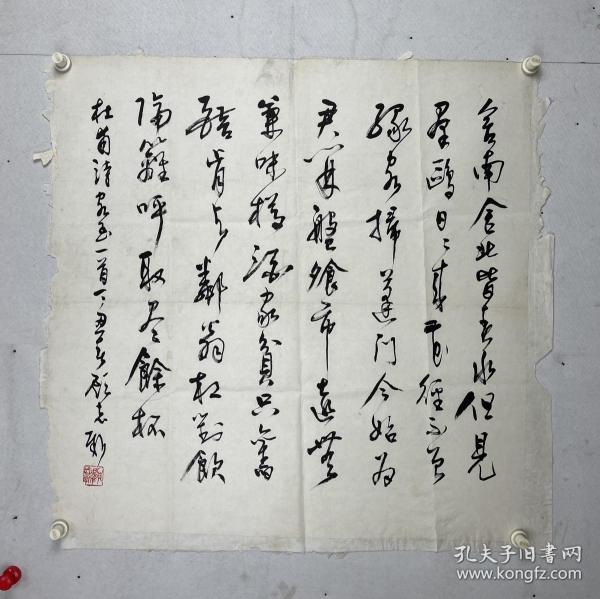 舍南舍北皆春水但見
羣鷗日〻來花徑不曾
緣客掃蓬門今始為
君開盤飧市遠無
兼味樽酒家貧只舊
醅肯与鄰翁相對飲
隔籬呼取盡餘杯
杜甫詩客至一首丁丑冬顧志新
孔夫子旧書网
www.kongfz.com